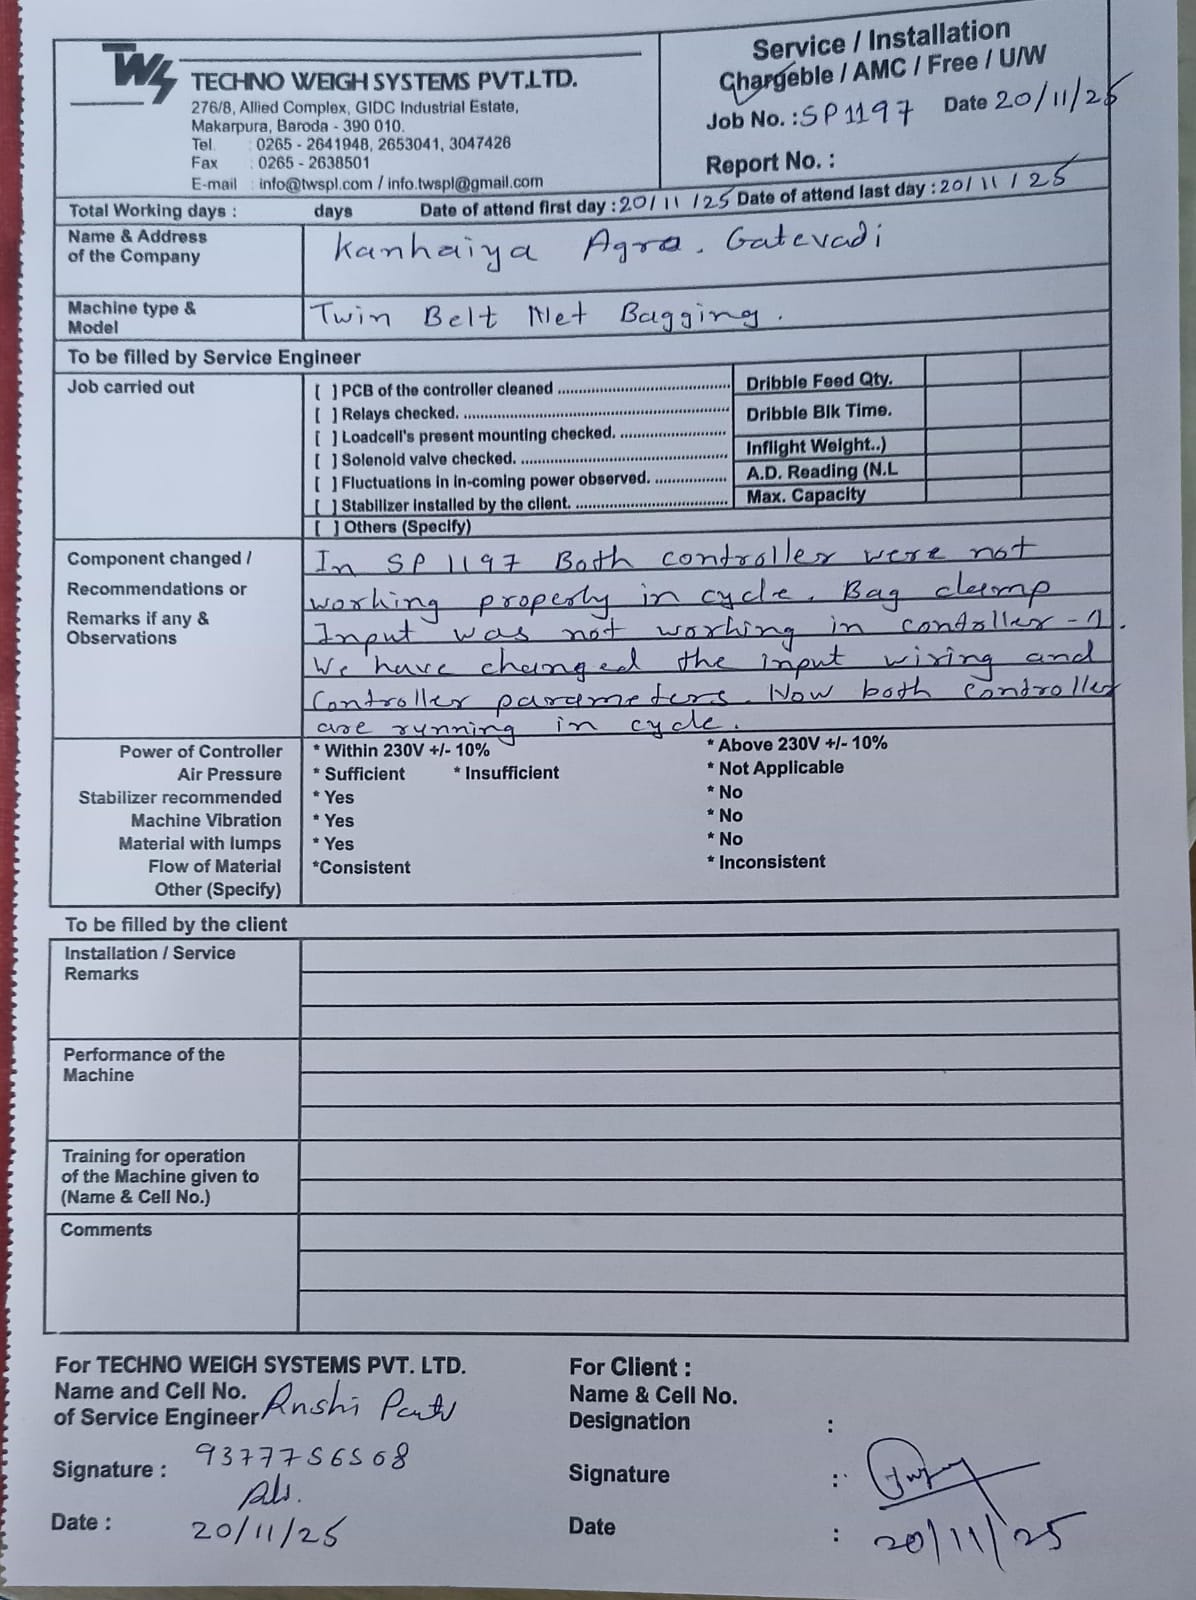 TWS TECHNO WEIGH SYSTEMS PVT.LTD.
276/8, Allied Complex, GIDC Industrial Estate,
Makarpura, Baroda - 390 010.
Tel : 0265 - 2641948, 2653041, 3047426
Fax : 0265 - 2638501
E-mail : info@twspl.com / info.twspl@gmail.com
Service / Installation
Chargeble / AMC / Free / U/W
Job No. : SP1197 Date 20/11/25
Report No. :
Total Working days : days Date of attend first day : 20/11/25 Date of attend last day : 20/11/25
Name & Address
of the Company
Kanhaiya Agro. Gatevadi
Machine type &
Model
Twin Belt Net Bagging.
To be filled by Service Engineer
Job carried out
[ ] PCB of the controller cleaned
[ ] Relays checked.
[ ] Loadcell's present mounting checked.
[ ] Solenoid valve checked.
[ ] Fluctuations in in-coming power observed.
[ ] Stabilizer installed by the client.
[ ] Others (Specify)
Dribble Feed Qty.
Dribble Blk Time.
Inflight Weight..)
A.D. Reading (N.L
Max. Capacity
Component changed /
Recommendations or
Remarks if any &
Observations
In SP 1197 Both controller were not
working properly in cycle. Bag clamp
Input was not working in controller - 1.
We have changed the input wiring and
Controller parameters. Now both controller
are running in cycle.
Power of Controller * Within 230V +/- 10% * Above 230V +/- 10%
Air Pressure * Sufficient * Insufficient * Not Applicable
Stabilizer recommended * Yes * No
Machine Vibration * Yes * No
Material with lumps * Yes * No
Flow of Material *Consistent * Inconsistent
Other (Specify)
To be filled by the client
Installation / Service
Remarks
Performance of the
Machine
Training for operation
of the Machine given to
(Name & Cell No.)
Comments
For TECHNO WEIGH SYSTEMS PVT. LTD.
Name and Cell No.
of Service Engineer
9377756508
Signature :
Date : 20/11/25
For Client :
Name & Cell No.
Designation :
Signature :
Date : 20/11/25